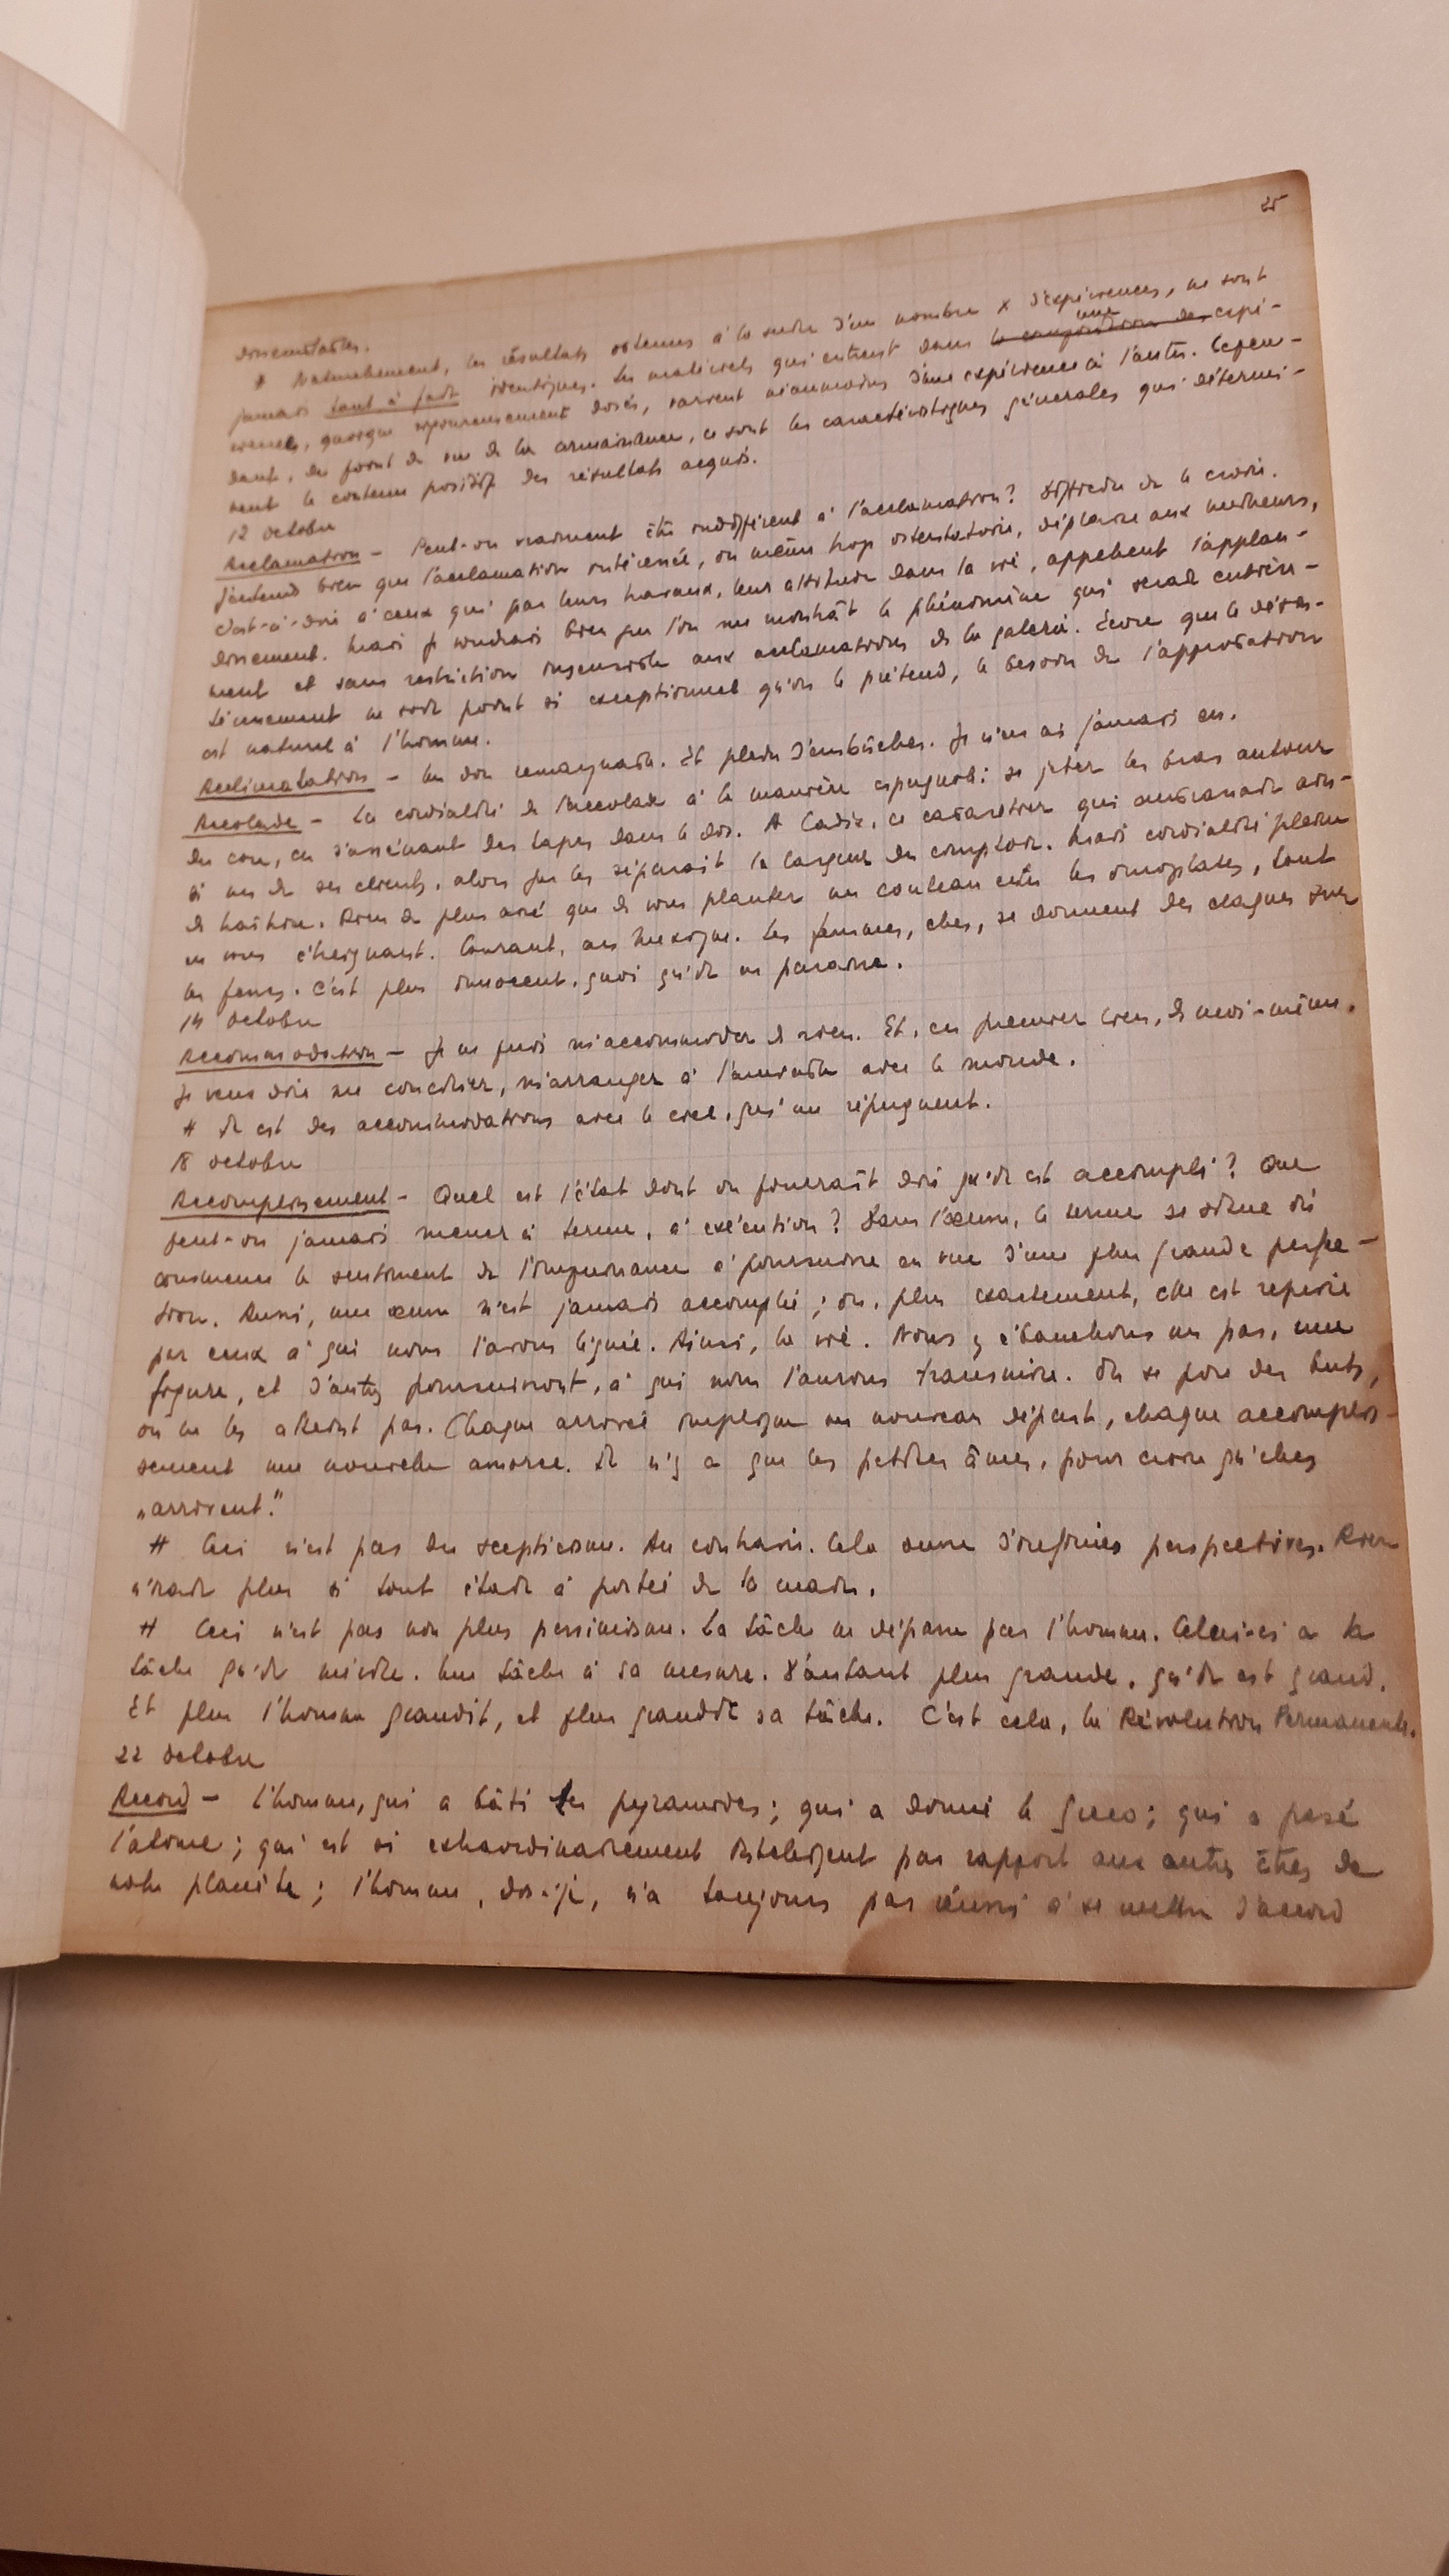 25
dosementables.
# Naturellement, les résultats obtenus à la suite d'un nombre x d'expériences, ne sont
jamais tout à fait identiques. Les matériels qui entrent dans la composition des une expé-
riences, quoique rigoureusement dosés, varient néanmoins d'une expérience à l'autre. Cepen-
dant, du point de vue de la connaissance, ce sont les caractéristiques générales qui détermi-
nent le contenu positif des résultats acquis.
12 octobre
Acclamation – Peut-on vraiment être indifférent à l'acclamation? Difficile de le croire.
J'entends bien que l'acclamation intéressée, ou même trop ostentatoire, déplaise aux meilleurs,
c'est-à-dire à ceux qui par leurs travaux, leur attitude dans la vie, appellent l'applau-
dissement. Mais je voudrais bien que l'on me montrât le phénomène qui serait entière-
ment et sans restriction insensible aux acclamations de la galerie. Encore que le désin-
téressement ne soit point si exceptionnel qu'on le prétend, le besoin de l'approbation
est naturel à l'homme.
Acclimatation – Un don remarquable. Et plein d'embûches. Je n'en ai jamais eu.
Accolade – La cordialité de l'accolade à la manière espagnole: se jeter les bras autour
du cou, en s'assénant des tapes dans le dos. A Cadix, ce cabaretier qui embrassait ain-
si un de ses clients, alors que les séparait la largeur du comptoir. Mais cordialité pleine
de traîtrise. Rien de plus aisé que de vous planter un couteau entre les omoplates, tout
en vous étreignant. Courant, au Mexique. Les femmes, elles, se donnent des claques sur
les fesses. C'est plus innocent, quoi qu'il en paraisse.
14 octobre
Accommodation – Je ne puis m'accommoder de rien. Et, en premier lieu, de moi-même.
Je veux dire me concilier, m'arranger à l'amiable avec le monde.
# Il est des accommodations avec le ciel, qui me répugnent.
18 octobre
Accomplissement – Quel est l'état dont on pourrait dire qu'il est accompli? Que
peut-on jamais mener à terme, à exécution? Dans l'œuvre, le terme se situe où
commence le sentiment de l'impuissance à poursuivre en vue d'une plus grande perfec-
tion. Aussi, une œuvre n'est jamais accomplie; ou, plus exactement, elle est reprise
par ceux à qui nous l'avons léguée. Ainsi, la vie. Nous y ébauchons un pas, une
figure, et d'autres poursuivront, à qui nous l'aurons transmise. On se pose des buts,
on ne les atteint pas. Chaque arrivée implique un nouveau départ, chaque accomplis-
sement une nouvelle amorce. Il n'y a que les petites âmes, pour croire qu'elles
„arrivent."
# Ceci n'est pas du scepticisme. Au contraire. Cela ouvre d'infinies perspectives. Rien
n'irait plus si tout était à portée de la main.
# Ceci n'est pas non plus pessimisme. La tâche ne dépasse pas l'homme. Celui-ci a la
tâche qu'il mérite. Une tâche à sa mesure. D'autant plus grande, qu'il est grand.
Et plus l'homme grandit, et plus grandit sa tâche. C'est cela, la Révolution Permanente.
22 octobre
Accord – L'homme, qui a bâti les pyramides; qui a donné le Greco; qui a pesé
l'atome; qui est si extraordinairement intelligent par rapport aux autres êtres de
notre planète; l'homme, dis-je, n'a toujours pas réussi à se mettre d'accord